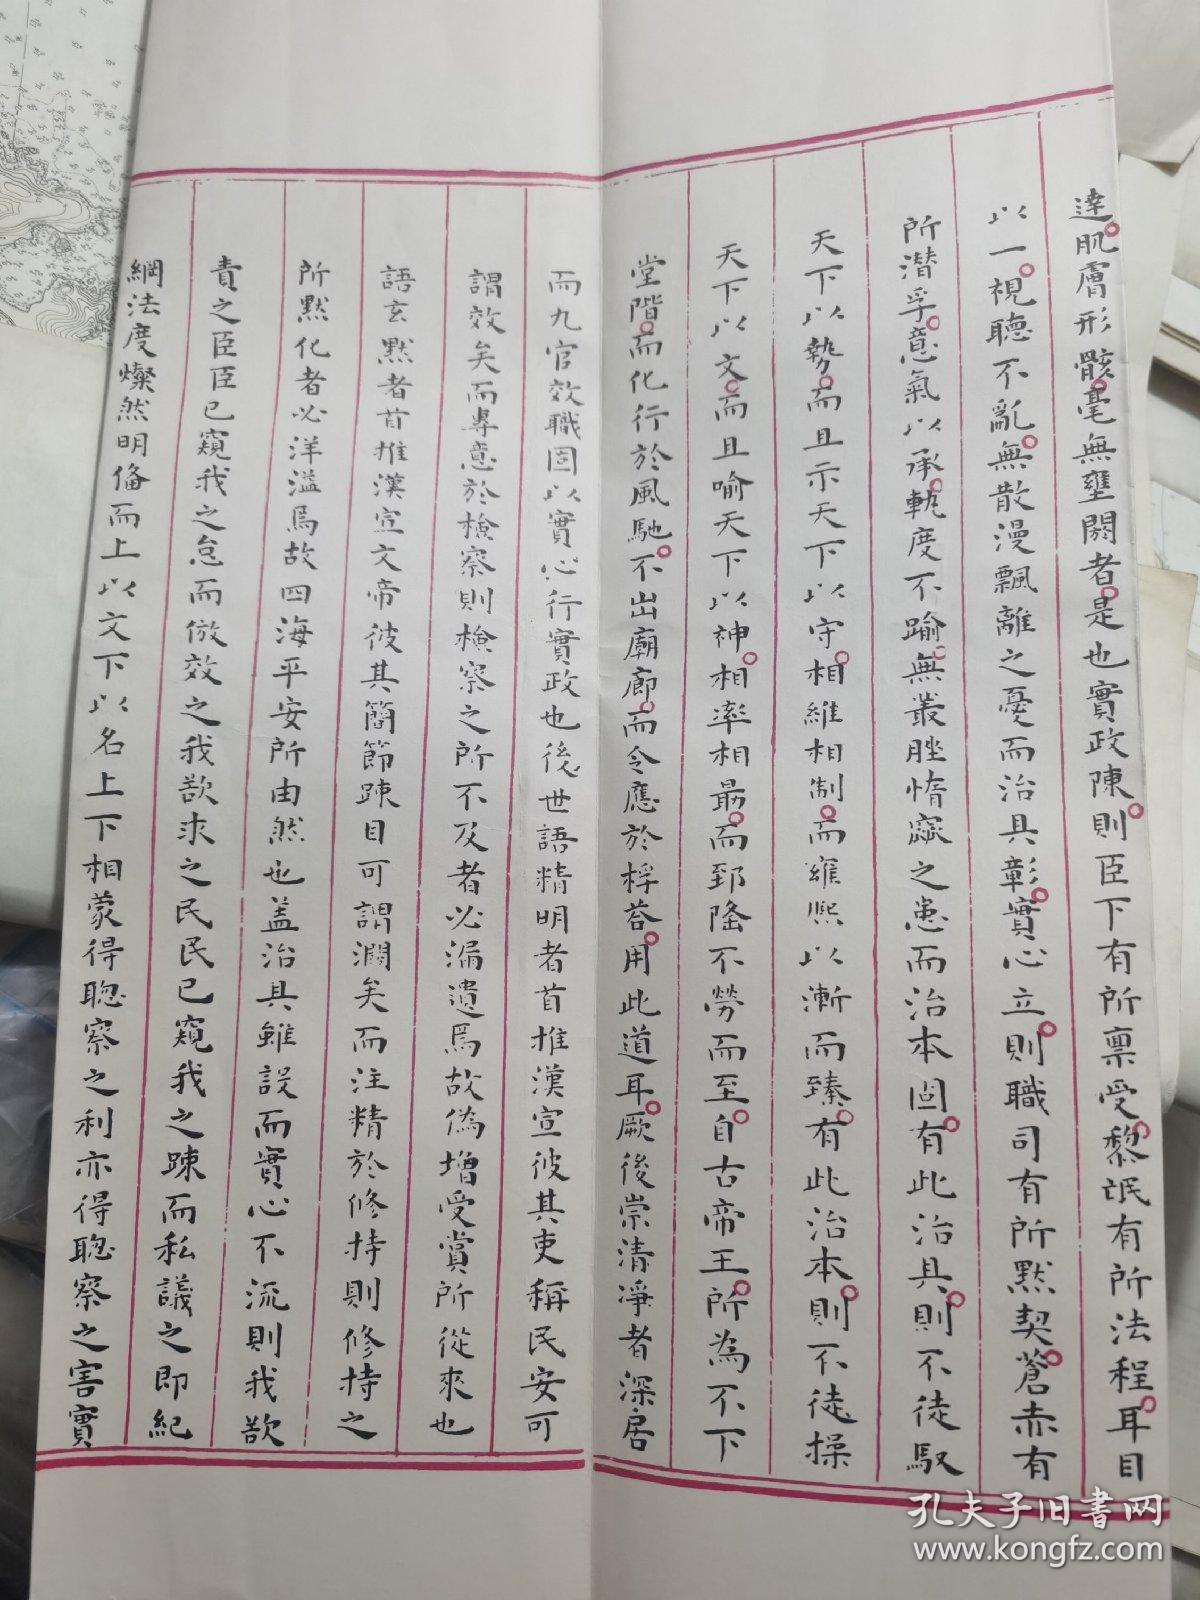 達肌膚形骸毫無壅閼者是也實政陳則臣下有所稟受黎氓有所法程耳目
以一視聽不亂無散漫飄離之憂而治具彰實心立則職司有所默契蒼赤有
所潛孚意氣以承軌度不踰無叢脞惰窳之患而治本固有此治具則不徒馭
天下以勢而且示天下以守相維相制而雍熙以漸而臻有此治本則不徒操
天下以文而且喻天下以神相率相最而郅隆不勞而至自古帝王所為不下
堂階而化行於風馳不出廟廊而令應於桴荅用此道耳厥後崇清凈者深居
而九官效職固以實心行實政也後世語精明者首推漢宣彼其吏稱民安可
謂效矣而專意於檢察則檢察之所不及者必漏遺焉故偽增受賞所從來也
語玄默者首推漢宣文帝彼其簡節踈目可謂濶矣而注精於修持則修持之
所默化者必洋溢焉故四海平安所由然也盖治具雖設而實心不流則我欲
責之臣臣已窺我之怠而倣效之我欲求之民民已窺我之踈而私議之即紀
綱法度燦然明俻而上以文下以名上下相蒙得聦察之利亦得聦察之害實
孔夫子旧书网
www.kongfz.com